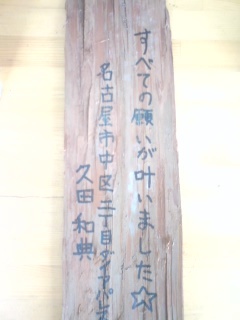 すべての願いが叶いました☆
名古屋市中区三丁目ダイアパレス
久田和典